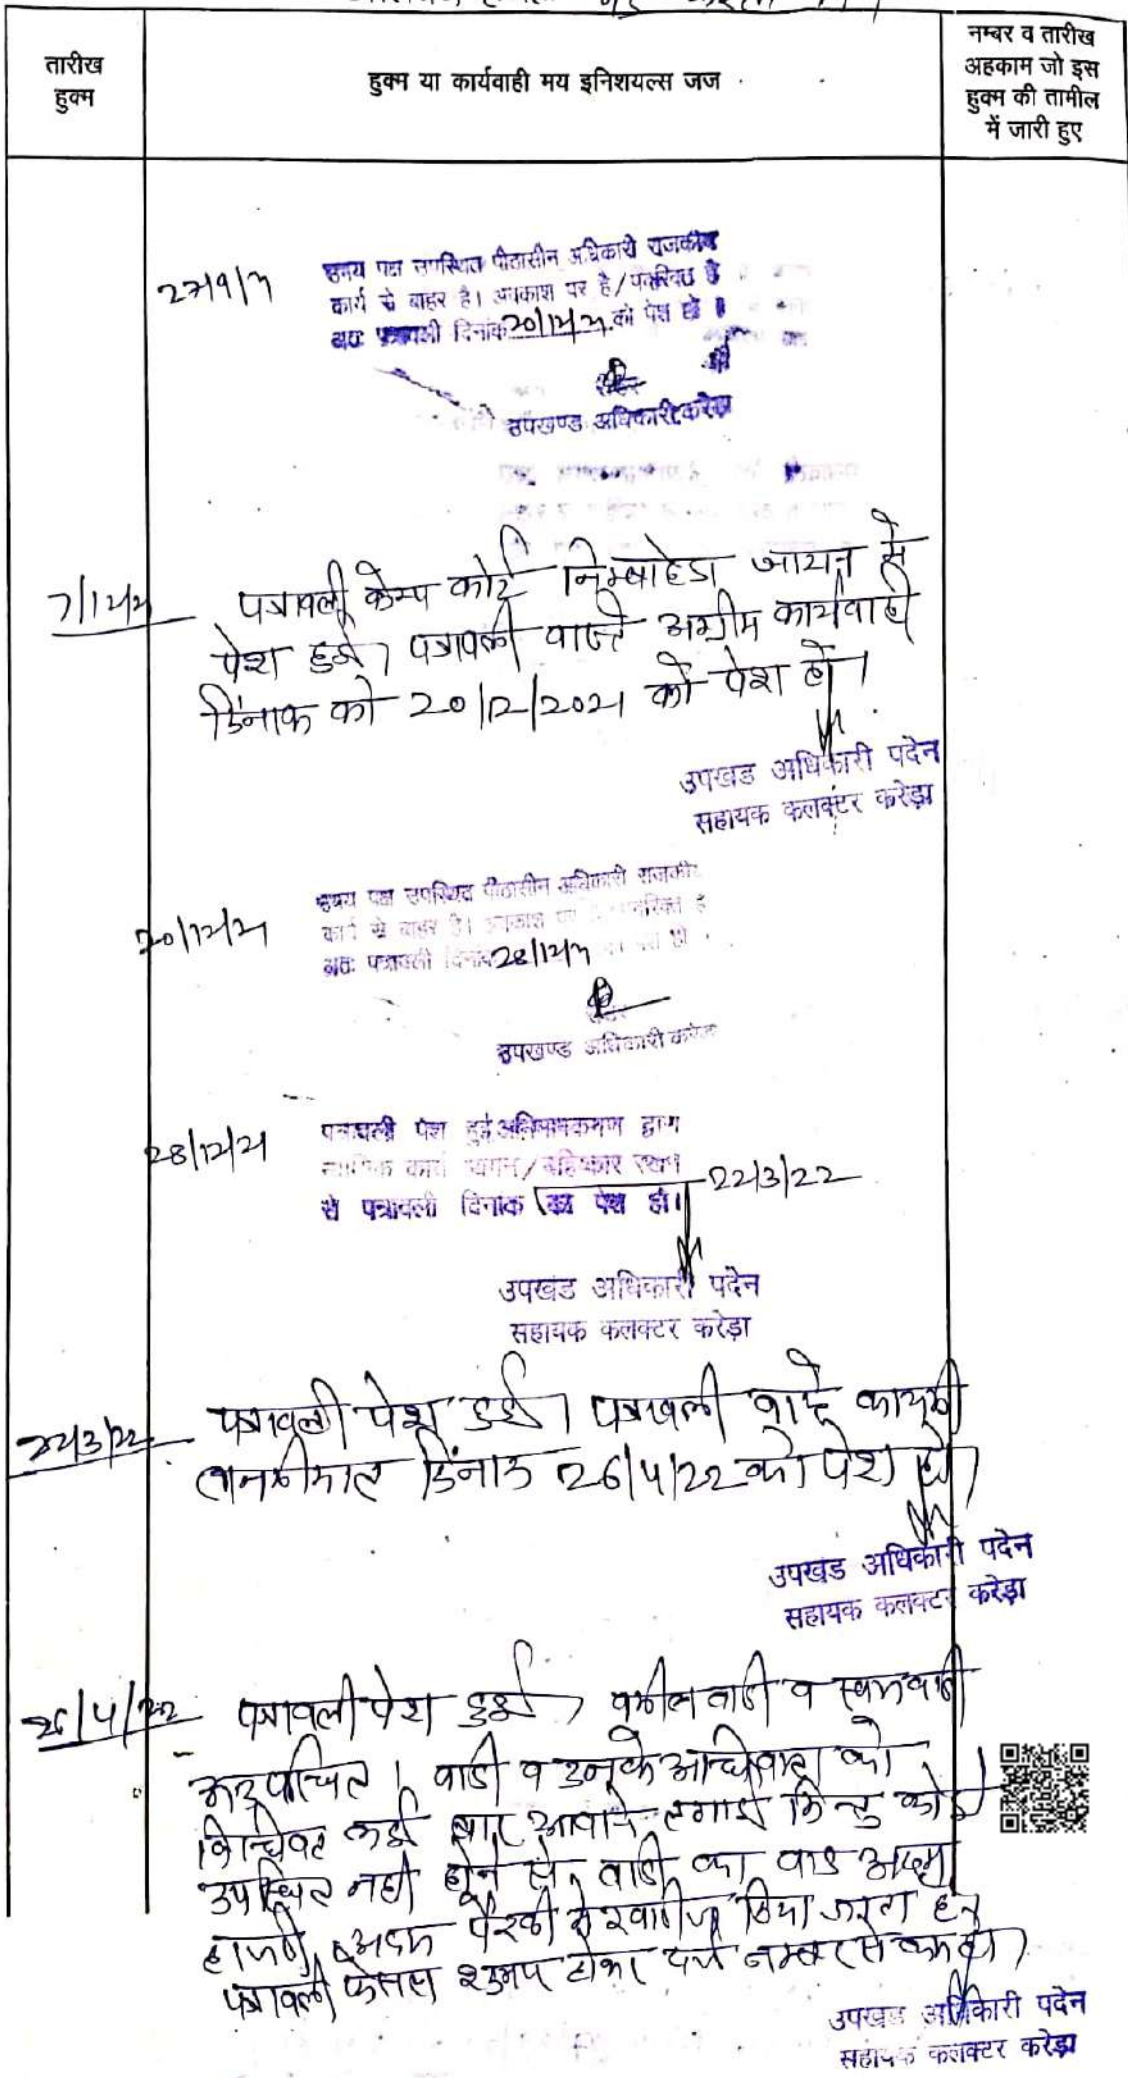 तारीख
हुक्म
हुक्म या कार्यवाही मय इनिशयल्स जज
नम्बर व तारीख
अहकाम जो इस
हुक्म की तामील
में जारी हुए
27/9/21
उभय पक्ष उपस्थित पीठासीन अधिकारी राजकीय
कार्य से बाहर है। अवकाश पर है/ पदरिक्त है
अतः पत्रावली दिनांक 20/12/21 को पेश हो
उपखण्ड अधिकारी करेड़ा
7/12/21
पत्रावली केम्प कोर्ट निम्बाहेडा जाटान से
पेश हुई। पत्रावली वास्ते अग्रीम कार्यवाही
दिनांक को 20/12/2021 को पेश हो।
उपखड अधिकारी पदेन
सहायक कलक्टर करेड़ा
20/12/21
उभय पक्ष उपस्थित पीठासीन अधिकारी राजकीय
कार्य से बाहर है। अवकाश पर है पदरिक्त है
अतः पत्रावली दिनांक 28/12/21 को पेश हो
उपखण्ड अधिकारी करेड़ा
28/12/21
पत्रावली पेश हुई अभिभाषकगण द्वारा
न्यायिक कार्य स्थगन/ बहिष्कार रखने
से पत्रावली दिनांक 22/3/22 को पेश हो।
उपखंड अधिकारी पदेन
सहायक कलक्टर करेड़ा
22/3/22
पत्रावली पेश हुई। पत्रावली वास्ते कायमी
तनकीयात दिनांक 26/4/22 को पेश हो।
उपखंड अधिकारी पदेन
सहायक कलक्टर करेड़ा
26/4/22
पत्रावली पेश हुई। वकील वादी व स्वयं वादी
अनुपस्थित। वादी व उनके अधिवक्ता को
विधिवत कई बार आवाजे लगाई किन्तु कोई
उपस्थित नही होने से वादी का वाद अदम
हाजरी, अदम पैरवी मे खारीज किया जाता है।
पत्रावली फैसल शुमार होकर दर्ज नम्बर से कम हो।
उपखण्ड अधिकारी पदेन
सहायक कलक्टर करेड़ा